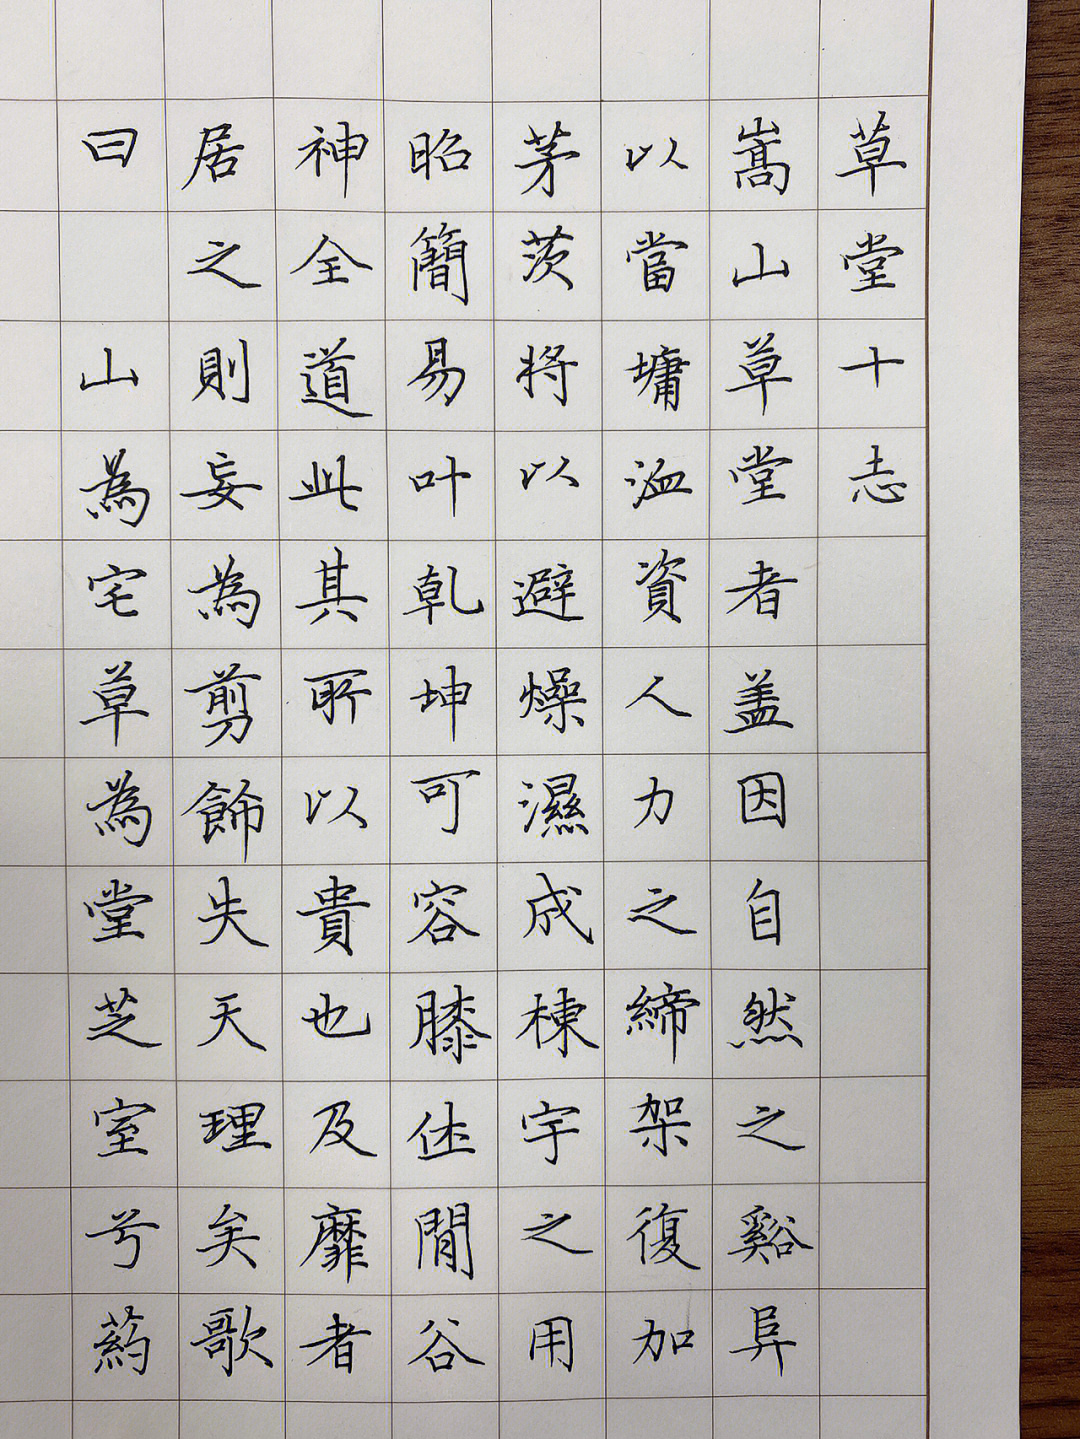 草堂十志
嵩山草堂者盖因自然之谿阜
以當墉洫資人力之締架復加
茅茨將以避燥濕成棟宇之用
昭簡易叶乾坤可容膝休閒谷
神全道此其所以貴也及靡者
居之則妄為剪飾失天理矣歌
曰 山為宅草為堂芝室兮葯